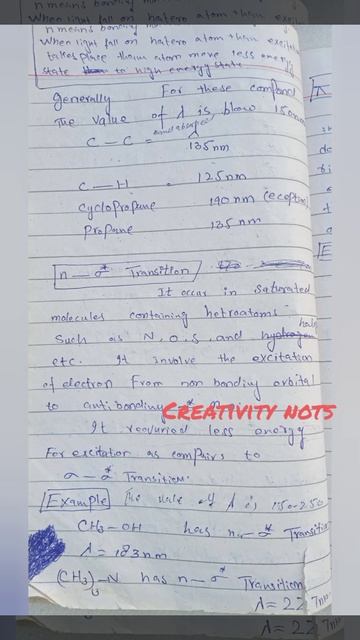 n means bonding
When light fall on hatero atom them excitation
takes place them atom move less energy
state to high energy state
generally For these compound
The value of λ is blow 150nm
C — C = 135nm
C — H = 125nm
Cyclopropane 190 nm (eception
Propane 135 nm
n — σ* Transition
It occur in saturated
molecules containing hetroatoms
Such as N, O, S, and halo
etc. It involve the excitation
of electron From non bonding orbital
to anti bonding
CREATIVITY NOTS
It requried less energy
For excitation as compairs to
σ — σ* Transition.
Example The value of λ is 150-250
CH3 — OH has n — σ* Transition
λ = 183 nm
(CH3)3 — N has n — σ* Transition
λ = 227nm
λ = 227nm